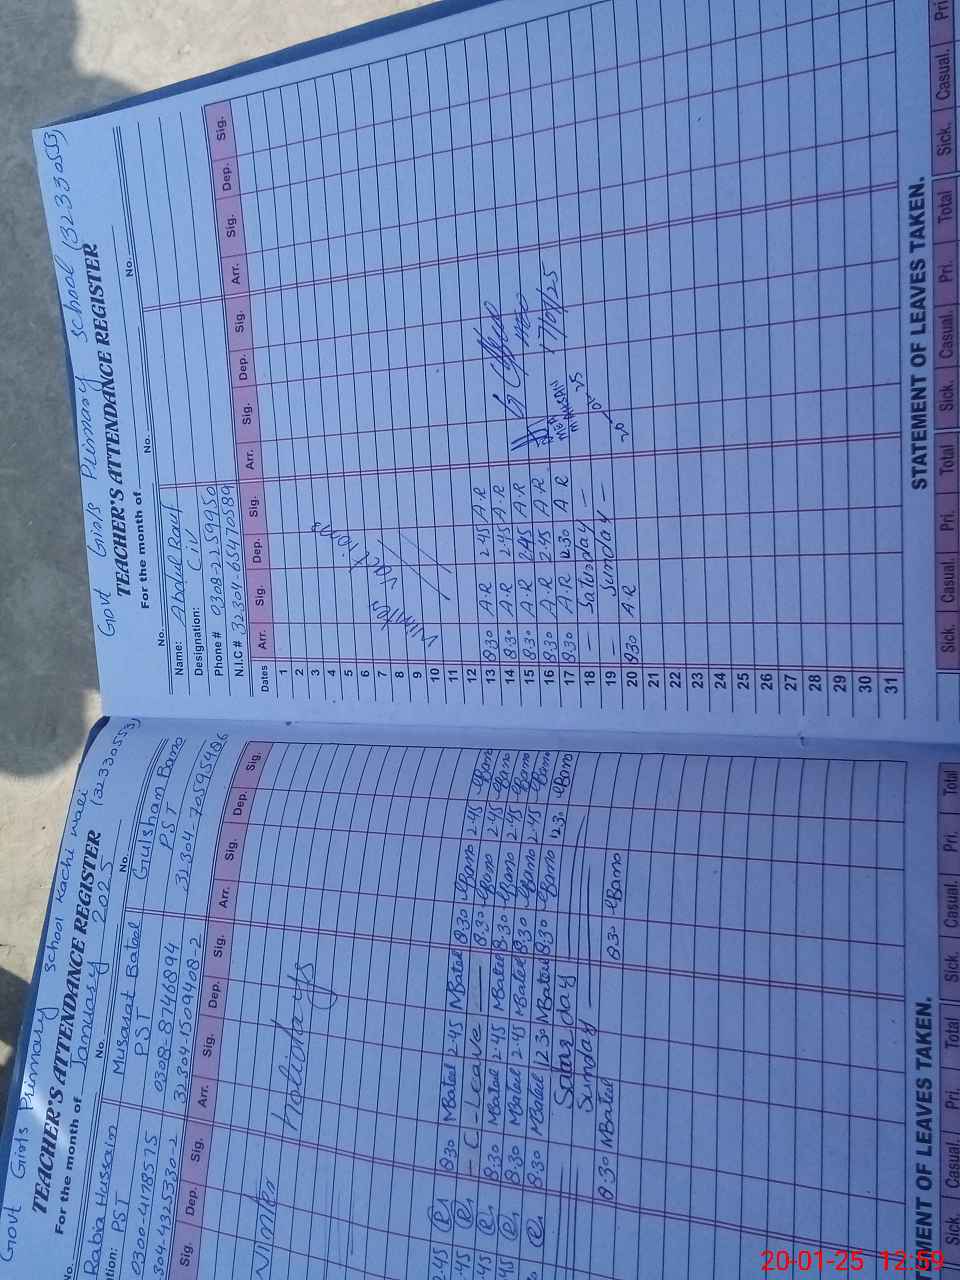 Govt Girls Primary School Kachi wali (32330553)
TEACHER'S ATTENDANCE REGISTER
For the month of January 2025
No. No. No.
Rabia Hussain Musarat Batool Gulsham Bano
PST PST PST
0300-4178575 0308-8746894
304-4325330-2 32304-1509408-2 32304-7059540-6
Sig. Dep. Sig. Arr. Sig. Dep. Sig. Arr. Sig. Dep. Sig.
Winter holidays
2.45 8:30 MBatool 2.45 MBatool 8:30 Bano 2.45 Bano
.45 - C - Leave - 8:30 Bano 2.45 Bano
.45 8:30 MBatool 2.45 MBatool 8:30 Bano 2.45 Bano
.45 8:30 MBatool 2.45 MBatool 8:30 Bano 2.45 Bano
8:30 MBatool 12:30 MBatool 8:30 Bano 12:30 Bano
Saturday
Sunday
8:30 MBatool 8:30 Bano
STATEMENT OF LEAVES TAKEN.
Sick. Casual. Pri. Total Sick. Casual. Pri. Total
Govt Girls Primary School (32330553)
TEACHER'S ATTENDANCE REGISTER
For the month of
No. No. No.
Name: Abdul Rauf
Designation: C iv
Phone # 0308-2259950
N.I.C # 32304-6547058-9
Dates Arr. Sig. Dep. Sig. Arr. Sig. Dep. Sig. Arr. Sig. Dep. Sig.
1
2
3
4
5
6
7
8
9
10
11
12
13 8:30 A.R 2.45 A.R
14 8:30 A.R 2.45 A.R
15 8:30 A.R 2.45 A.R
16 8:30 A.R 2.45 A.R
17 8:30 A.R 12.30 A R
18 - Saturday -
19 - Sunday -
20 8:30 A.R
21
22
23
24
25
26
27
28
29
30
31
17/01/25
STATEMENT OF LEAVES TAKEN.
Sick. Casual. Pri. Total Sick. Casual. Pri. Total Sick. Casual. Pri
20-01-25 12:59